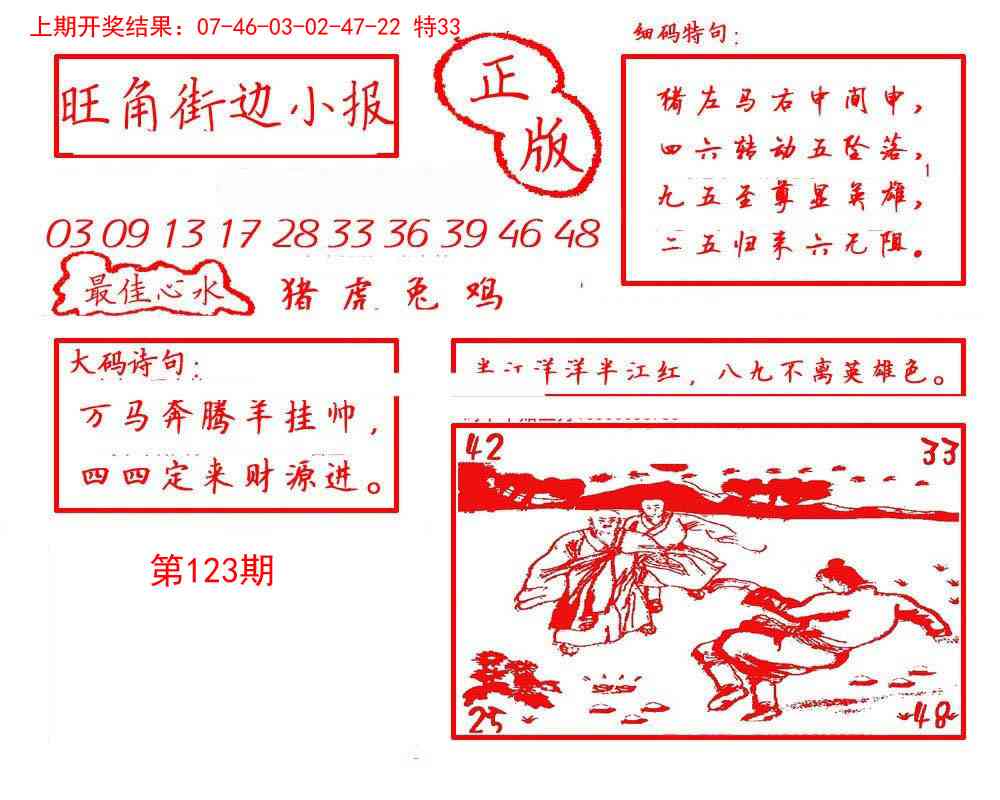 上期开奖结果：07-46-03-02-47-22 特33
旺角街边小报
正
版
03 09 13 17 28 33 36 39 46 48
最佳心水
猪 虎 兔 鸡
细码特句：
猪左马右中间申，
四六转动五坠落，
九五至尊显英雄，
二五归来六无阻。
1
大码诗句：
万马奔腾羊挂帅，
四四定来财源进。
洋洋半江红，八九不离英雄色。
第123期
42
33
25
48